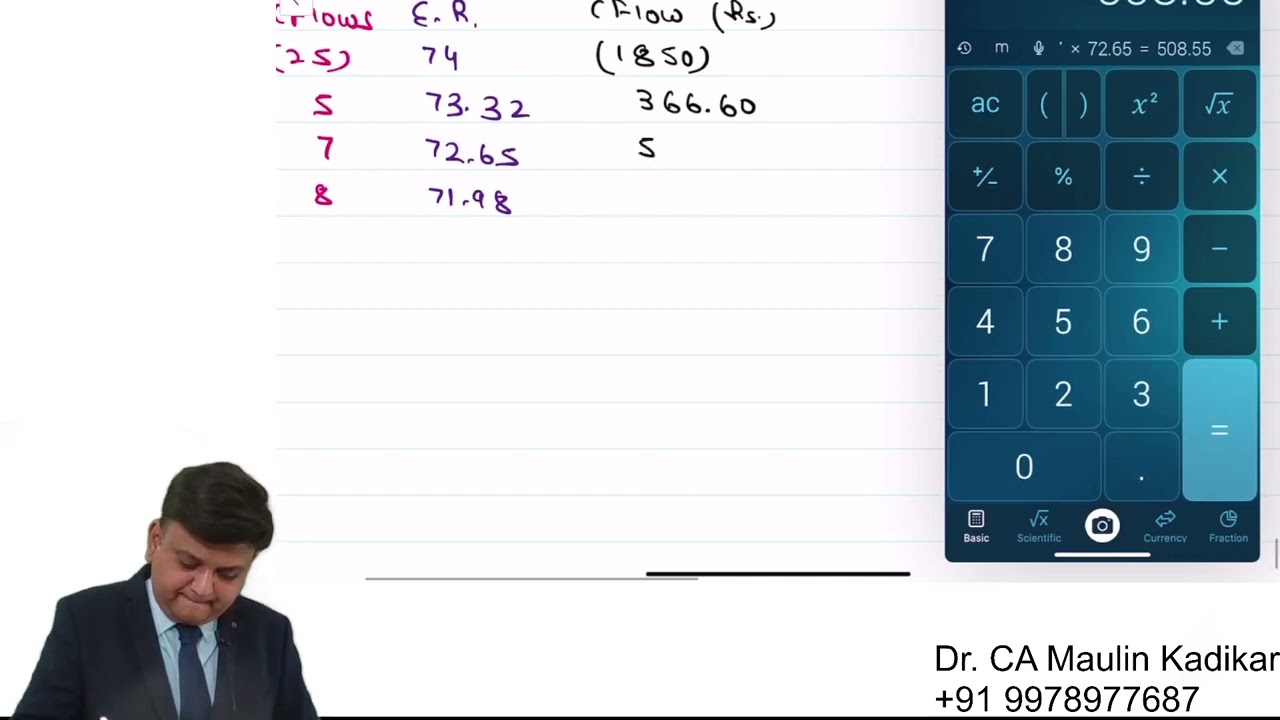 Flows E.R. CFlow (Rs.)
(25) 74 (1850)
5 73.32 366.60
7 72.65 5
8 71.98
m × 72.65 = 508.55
ac ( ) x² √x
+/− % ÷ ×
7 8 9 −
4 5 6 +
1 2 3 =
0 .
√x
Basic Scientific Currency Fraction
Dr. CA Maulin Kadikar
+91 9978977687